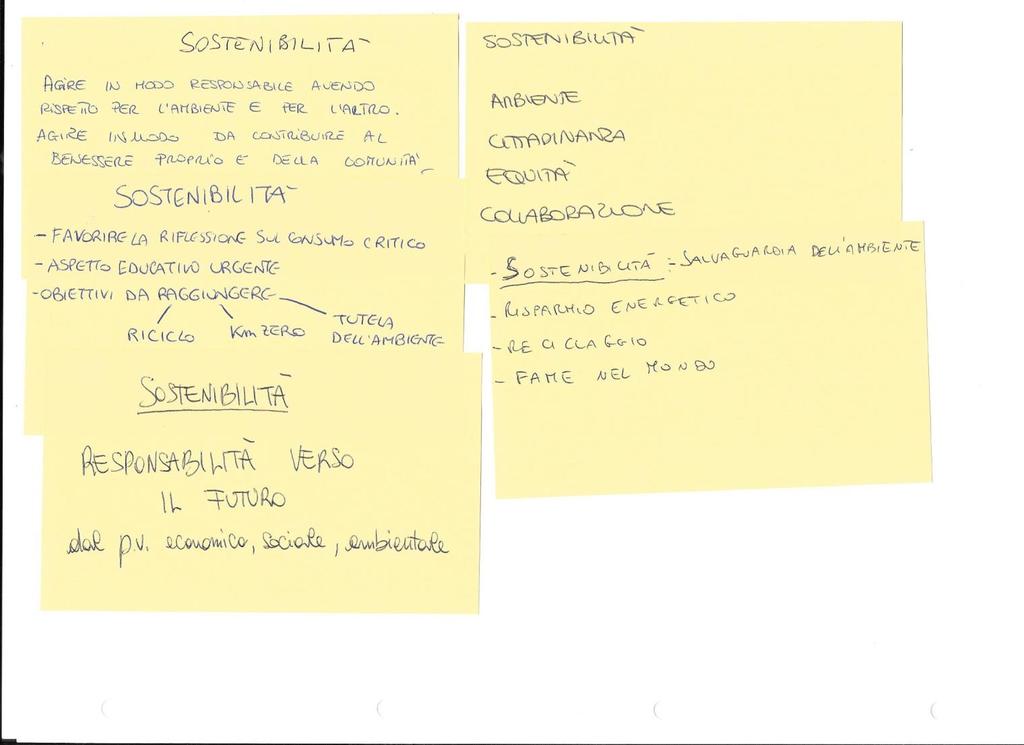 SOSTENIBILITÀ
AGIRE IN MODO RESPONSABILE AVENDO
RISPETTO PER L'AMBIENTE E PER L'ALTRO.
AGIRE IN MODO DA CONTRIBUIRE AL
BENESSERE PROPRIO E DELLA COMUNITÀ
SOSTENIBILITÀ
- FAVORIRE LA RIFLESSIONE SUL CONSUMO CRITICO
- ASPETTO EDUCATIVO URGENTE
- OBIETTIVI DA RAGGIUNGERE
RICICLO
Km ZERO
TUTELA
DELL'AMBIENTE
SOSTENIBILITÀ
RESPONSABILITÀ VERSO
IL FUTURO
dal p.v. economico, sociale, ambientale
SOSTENIBILITÀ
AMBIENTE
CITTADINANZA
EQUITÀ
COLLABORAZIONE
- SOSTENIBILITÀ : - SALVAGUARDIA DELL'AMBIENTE
- RISPARMIO ENERGETICO
- RECICLAGGIO
- FAME NEL MONDO